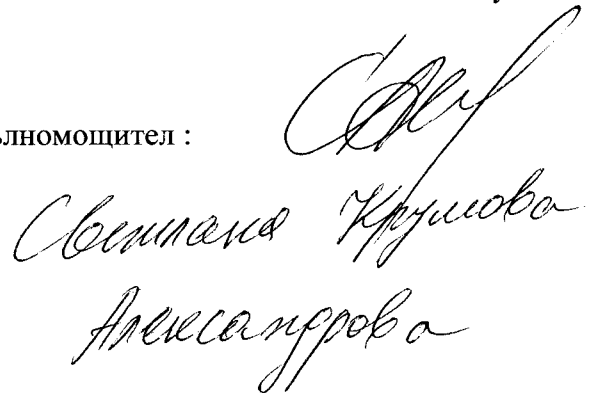 ълномощител :
Светлана Крумова
Александрова